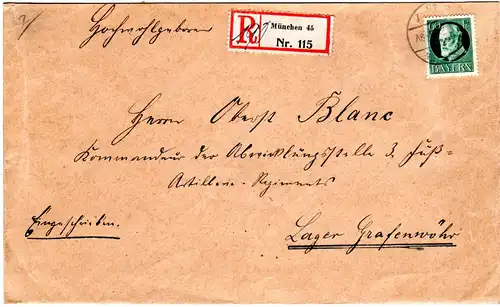 Hochwohlgeboren
R
München 45
Nr. 115
BAYERN
Herrn Oberst Blanc
Kommandeur der Abwicklungsstelle 3. Fuß-
Artillerie-Regiments
Eingeschrieben.
Lager Grafenwöhr